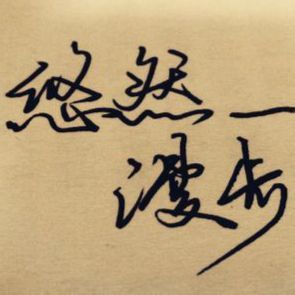 悠然一
漫步